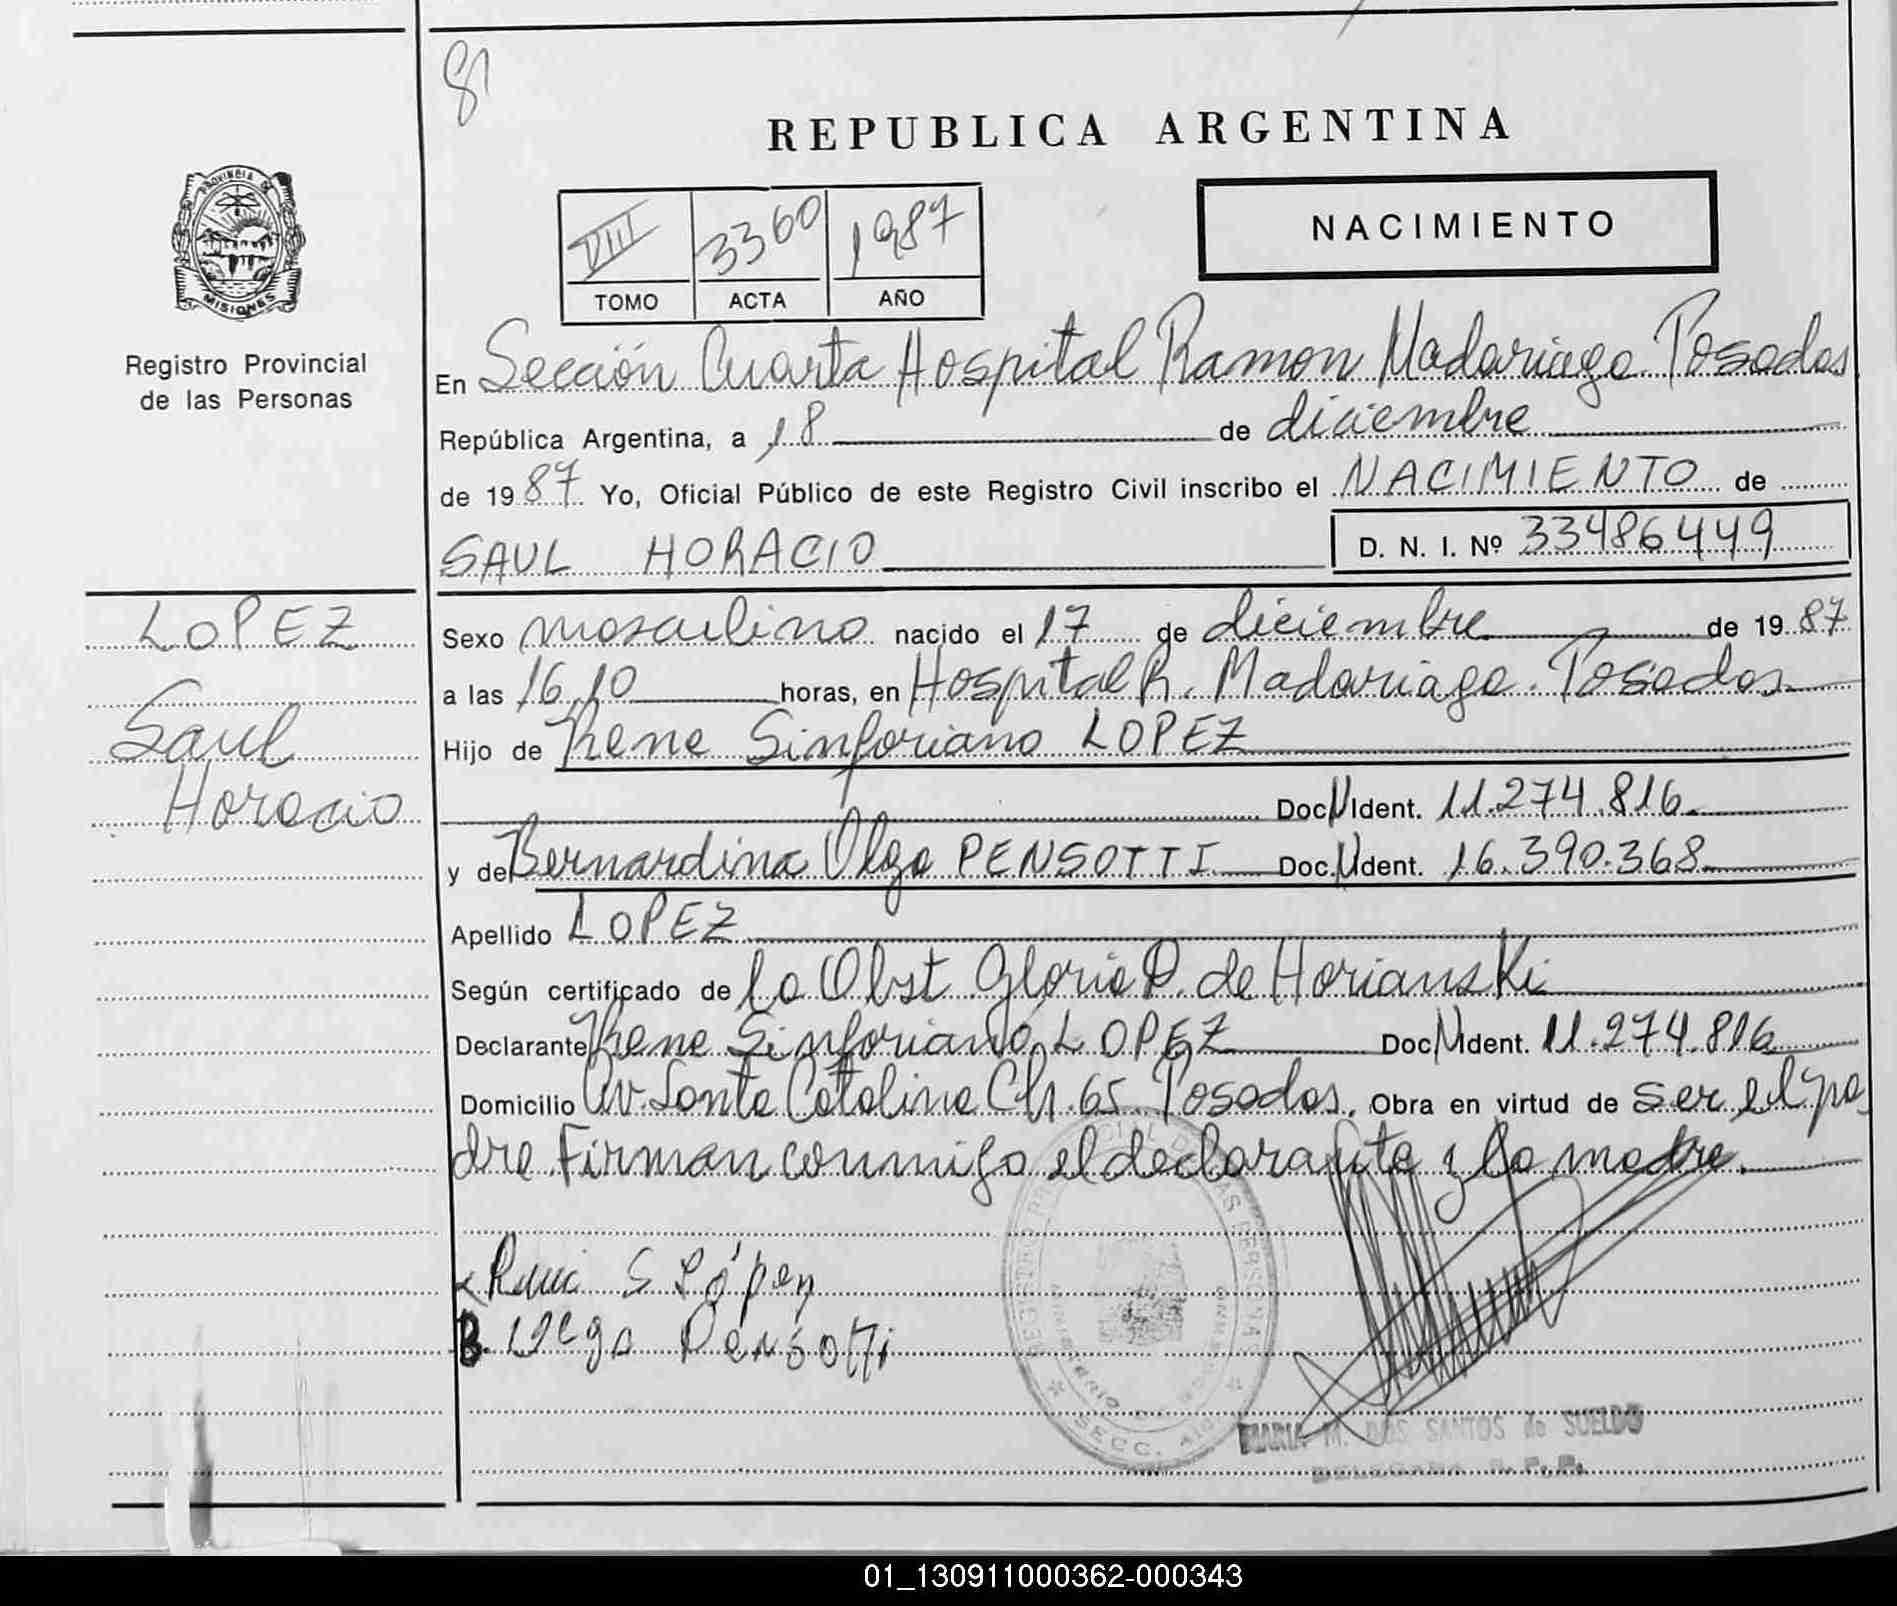 81
REPUBLICA ARGENTINA
PROVINCIA DE
MISIONES
Registro Provincial
de las Personas
VIII 3360 1987
TOMO ACTA AÑO
NACIMIENTO
En Sección Cuarta Hospital Ramon Madariaga Posadas
República Argentina, a 18 de diciembre
de 1987 Yo, Oficial Público de este Registro Civil inscribo el NACIMIENTO de
SAUL HORACIO D. N. I. Nº 33486449
LOPEZ
Saul
Horacio
Sexo masculino nacido el 17 de diciembre de 1987
a las 16,10 horas, en Hospital R. Madariaga. Posadas
Hijo de Rene Sinforiano LOPEZ
Doc N Ident. 11.274.816
y de Bernardina Olga PENSOTTI Doc. N Ident. 16.390.368
Apellido LOPEZ
Según certificado de la Obst. Gloria D. de Horianski
Declarante Rene Sinforiano LOPEZ Doc N Ident. 11.274.816
Domicilio Av. Santa Catalina Ch. 65 Posadas. Obra en virtud de ser el pa
dre Firman conmigo el declarante y la madre.
S López
B. Olga Pensotti
REGISTRO PROVINCIAL DE LAS PERSONAS
MINISTERIO DE GOBIERNO
SECC.
MARIA M. DOS SANTOS de SUELDO
DELEGADA R. P. P.
01_130911000362-000343